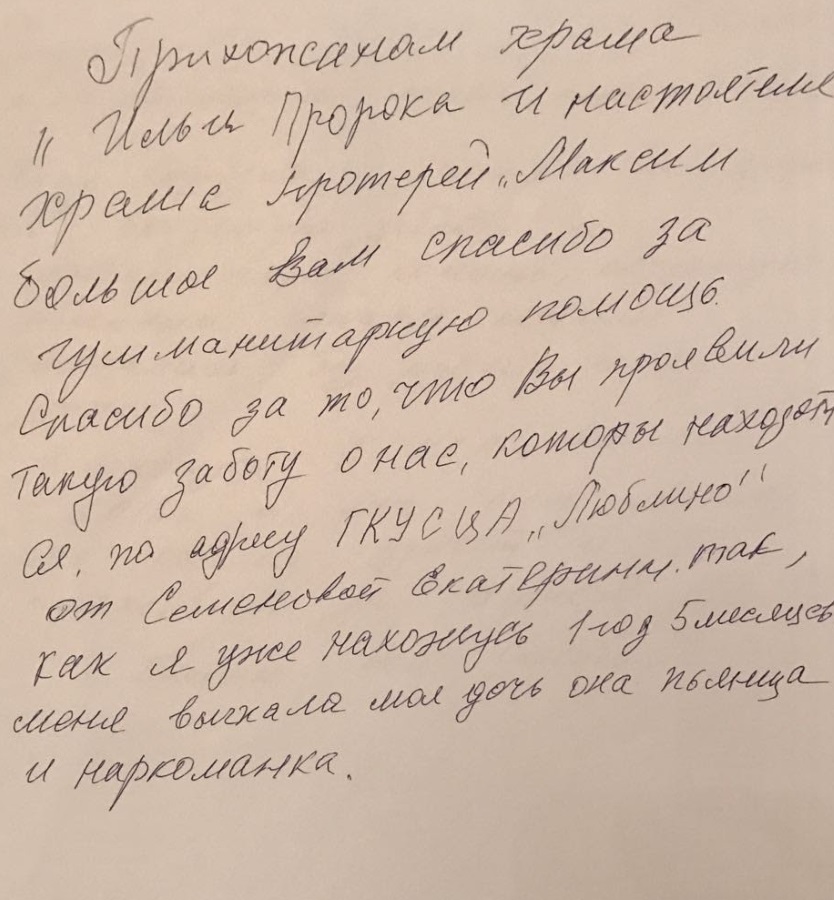 Прихожанам храма
"Ильи Пророка и настоятеля
храма протерей „Максим
большое Вам спасибо за
гумманитарную помощь.
Спасибо за то, что Вы проявили
такую заботу о нас, которы находят
ся, по адресу ГКУ СЦА „Люблино"
от Семеновой Екатерины. так,
как я уже нахожусь 1 год 5 месяцев
меня выгнала моя дочь она пьяница
и наркоманка.